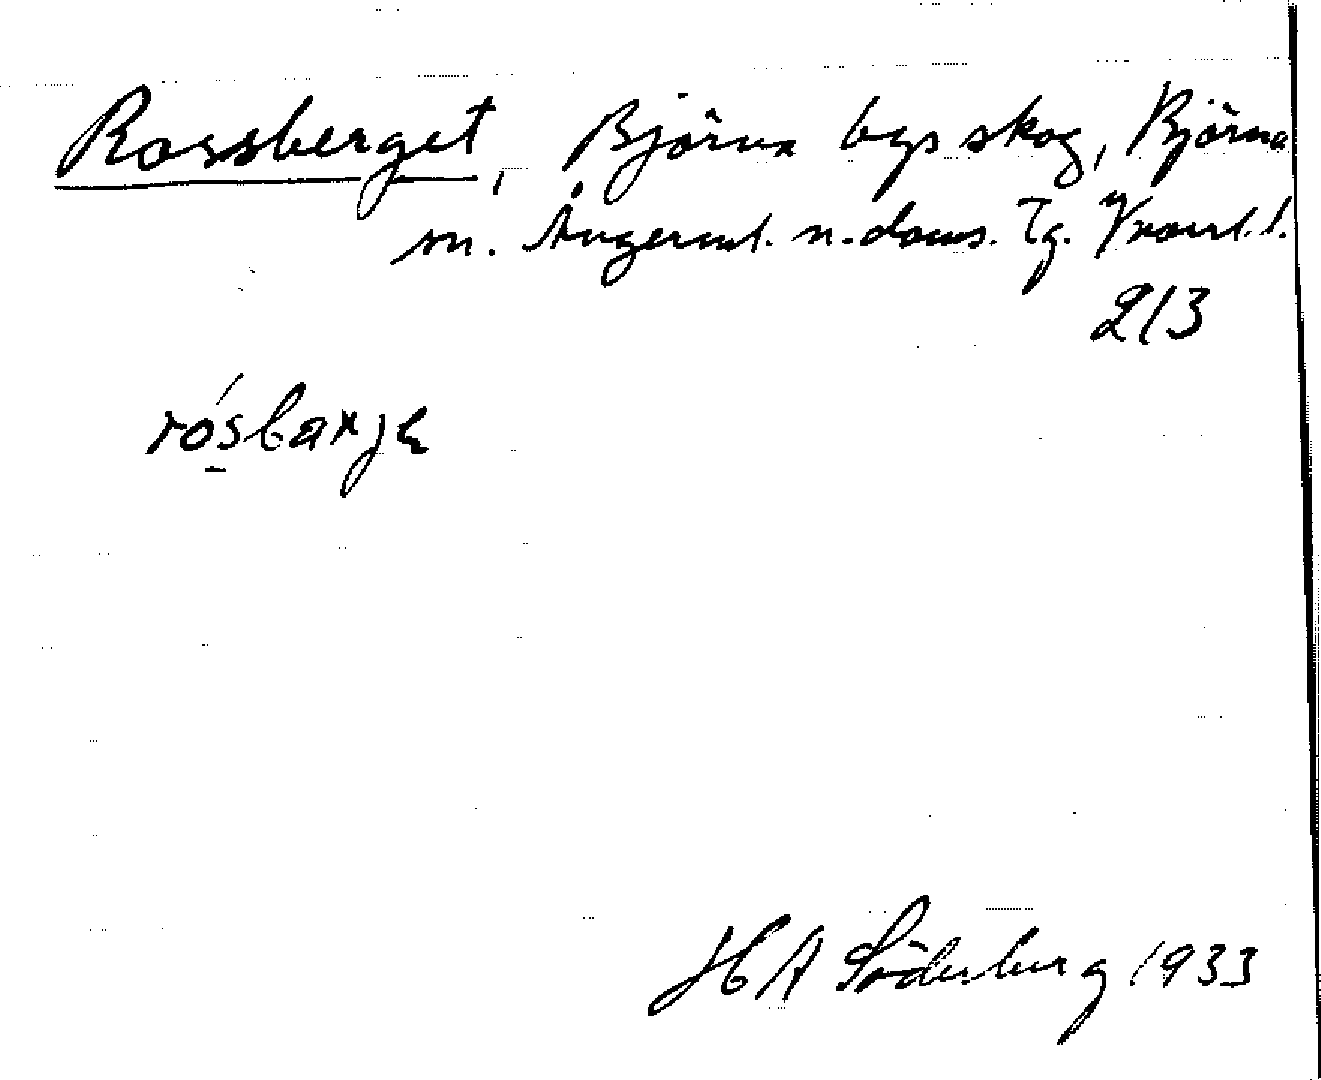 Rossberget, Björna bys skog, Björna
sn. Ångerml. n. doms. Tg. Vnorrl. l.
213
rósbarje
H A Söderberg 1933